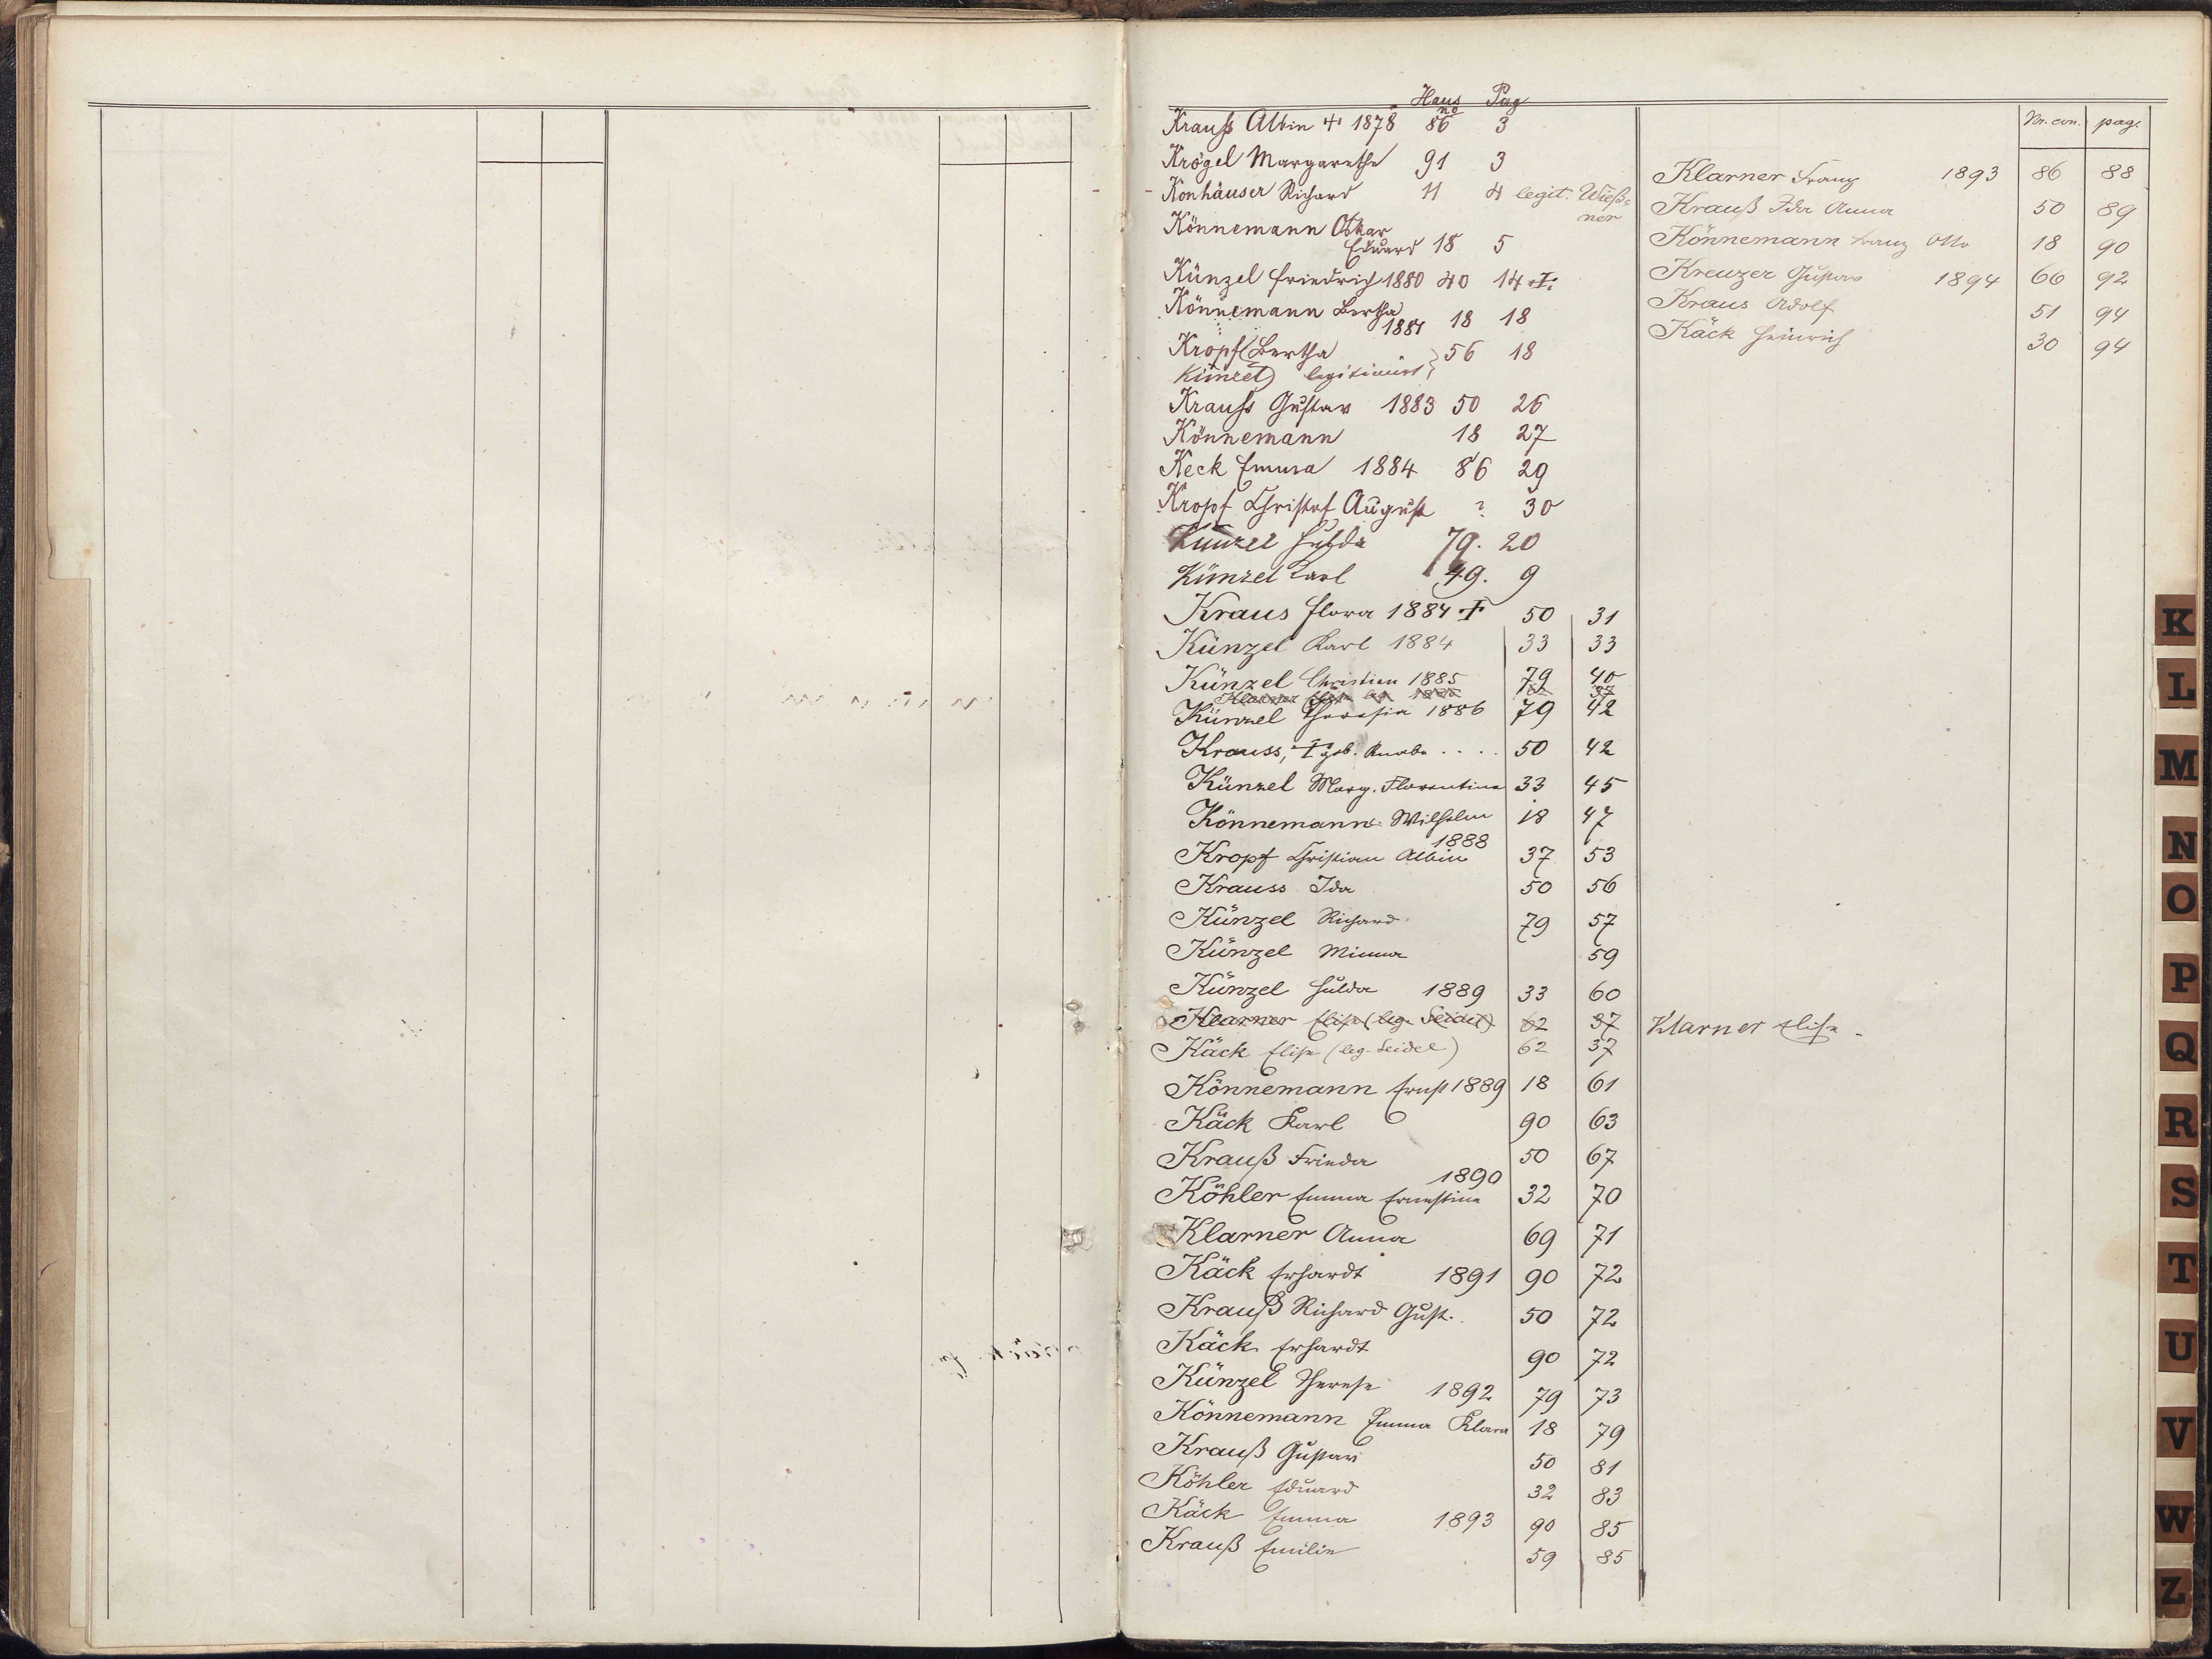 Haus Pag
no
Krauß Albin + 1878 86 3
Krögel Margarethe 91 3
Konhäuser Richard 11 4 legit. Wieß-
ner
Könnemann Oskar
Eduard 18 5
Künzel Friedrich 1880 40 14 +
Könnemann Bertha
1881 18 18
Kropf (Bertha 56 18
Künzel) legitimirt
Krauß Gustav 1883 50 26
Könnemann 18 27
Keck Emma 1884 86 29
Kropf Christof August ? 30
Künzel Hulda 79. 20
Künzel Karl 49. 9
Kraus Flora 1884 + 50 31
Künzel Karl 1884 33 33
Künzel Christian 1885 79 40
Klarner Elise leg. 62 37
Künzel Theresia 1886 79 42
Krauss, + geb. Knabe .... 50 42
Künzel Marg. Florentina 33 45
Könnemann Wilhelm 18 47
1888
Kropf Christian Albin 37 53
Krauss Ida 50 56
Künzel Richard 79 57
Künzel Minna 59
Künzel Hulda 1889 33 60
Klarner Elise (leg. Seidel) 62 37
Käck Elise (leg. Seidel) 62 37
Könnemann Ernst 1889 18 61
Käck Karl 90 63
Krauß Frieda 50 67
1890
Köhler Emma Ernestine 32 70
Klarner Anna 69 71
Käck Erhardt 1891 90 72
Krauß Richard Gust. 50 72
Käck Erhardt 90 72
Künzel Therese 1892 79 73
Könnemann Emma Klara 18 79
Krauß Gustav 50 81
Köhler Eduard 32 83
Käck Emma 1893 90 85
Krauß Emilie 59 85
Nr. cur. pag.
Klarner Franz 1893 86 88
Krauß Ida Anna 50 89
Könnemann Franz Otto 18 90
Kreuzer Gustav 1894 66 92
Kraus Adolf 51 94
Käck Heinrich 30 94
Klarner Elise
K
L
M
N
O
P
Q
R
S
T
U
V
W
Z